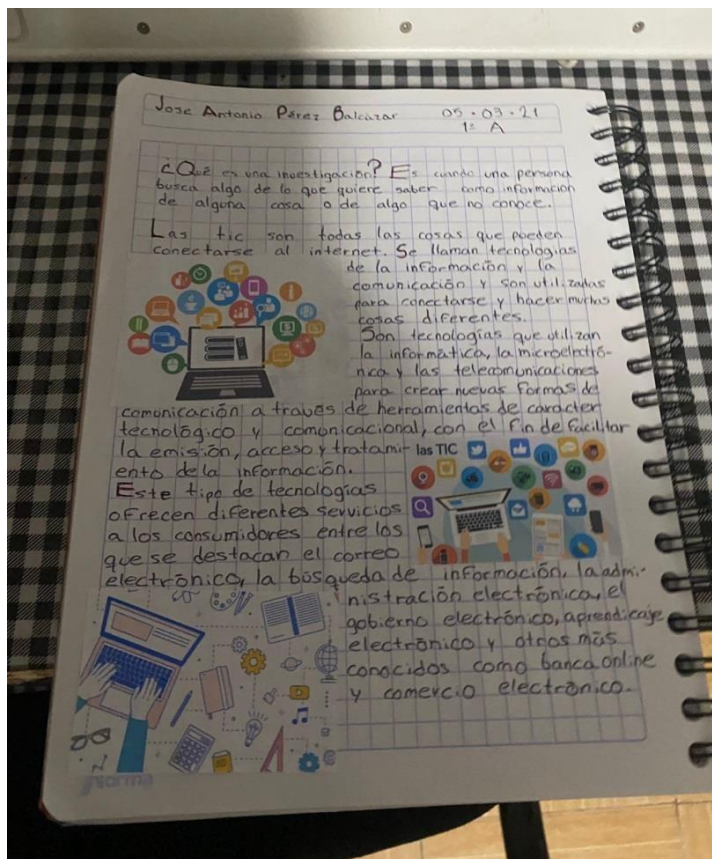 Jose Antonio Pérez Balcázar 05 · 03 · 21
1º A
¿Qué es una investigación? Es cuando una persona
busca algo de lo que quiere saber como información
de alguna cosa o de algo que no conoce.
Las tic son todas las cosas que pueden
conectarse al internet. Se llaman tecnologías
de la información y la
comunicación y son utilizadas
para conectarse y hacer muchas
cosas diferentes.
Son tecnologías que utilizan
la informática, la microelectró-
nica y las telecomunicaciones
para crear nuevas formas de
comunicación a través de herramientas de carácter
tecnológico y comunicacional, con el fin de facilitar
la emisión, acceso y tratami-
ento de la información.
las TIC
Este tipo de tecnologías
ofrecen diferentes servicios
a los consumidores entre los
que se destacan el correo
electrónico, la búsqueda de información, la admi-
nistración electrónica, el
gobierno electrónico, aprendicaje
electrónico y otros más
conocidos como banca online
y comercio electrónico.
Norma